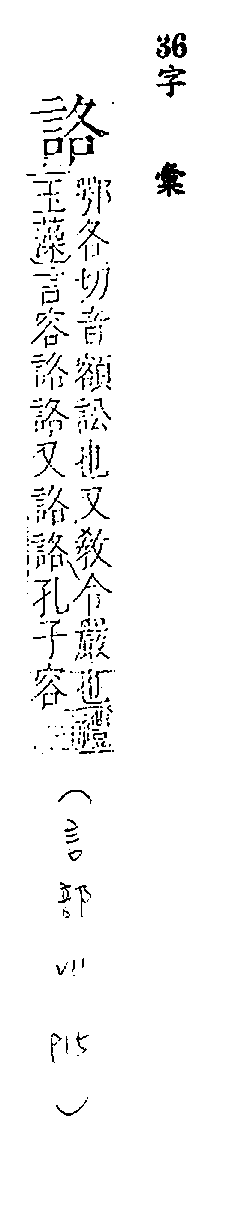 36字彙
詻
鄂各切音額訟也又敎令嚴也禮
玉藻言容詻詻又詻詻孔子容
（言部 VII P15）